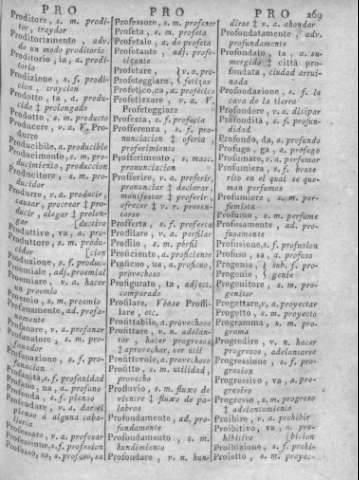 PRO
PRO
PRO 269
Proditore, s. m. prodi-
tor, traydor
Proditoriamente, adv.
de un modo proditorio
Proditorio, ia, a. prodi-
torio
Prodizione, s. f. prodi-
cion, traycion
Prodotto, ta, a. produ-
cido ‡ prolongado
Prodotto, s. m. producto
Producere, v. a. V. Pro-
durre
Producibile, a. producible
Producimento, s. m. pro-
ducimiento, produccion
Producitore, s. m. pro-
ducidor
Produrre, v. a. producir,
causar, procrear ‡ pro-
ducir, alegar ‡ prolon-
gar [ductivo
Produttivo, va, a. pro-
Produttore, s. m. produ-
cidor [cion
Produzione, s. f. produc-
Proemiale, adj. proemial
Proemiare, v. a. hacer
proemio
Proemio, s. m. proemio
Profanamente, ad. profa-
namente
Profanare, v. a. profanar
Profanatore, s. m. pro-
fanador
Profanazione, s. f. pro-
fanacion
Profanità, s. f. profanidad
Profano, na, a. profano
Profenda, s. f. pienso
Profendare, v. a. dar el
pienso á alguna caba-
llería
Professare, v. a. profesar
Professione, s. f. profesion
Professo, sa, s. profeso, sa
Professore, s. m. profesor
Profeta, s. m. profeta
Profetale, a. de profeta
Profetante, adj. profe-
tizante
Profetare, {v. a. pro-
Profeteggiare, {fetizar
Profetico, ca, a. profético
Profetizzare, v. a. V.
Profeteggiare
Profezia, s. f. profecía
Profferenza, s. f. pro-
nunciacion ‡ oferta
proferimiento
Profferimento, s. masc.
pronunciacion
Profferire, v. a. proferir,
pronunciar ‡ declarar,
manifestar ‡ proferir,
ofrecer ‡ v. r. presen-
tarse
Profferta, s. f. proferta
Profilare, v. a. perfilar
Profilo, s. m. pérfil
Proficiente, a. proficiente
Proficuo, ua, a. proficuo,
provechoso
Profigurato, ta, adject.
comparado
Profilare, Véase Proffi-
lare, etc.
Profittabile, a. provechoso
Profittare, v. n. adelan-
tar, hacer progresos
‡ aprovechar, ser util
Profittevole, a. provechoso
Profitto, s. m. utilidad,
provecho
Profluvio, s. m. fluxo de
vientre ‡ fluxo de pa-
labras
Profondamente, ad. pro-
fundamente
Profondamento, s. m.
hundimiento
Profondare, v. n. hun-
dirse ‡ v. a. ahondar
Profondatamente, adv.
profundamente
Profondato, ta, a. su-
mergido ‡ città pro-
fondata, ciudad arrui-
nada
Profondazione, s. f. la
cava de la tierra
Profondere, v. a. disipar
Profondità, s. f. profun-
didad
Profondo, da, a. profundo
Profugo, ga, a. profugo
Profumare, v. a. sahumar
Profumiera, s. f. brase-
rito en el qual se que-
man perfumes
Profumiere, s. m. per-
fumista
Profumo, s. m. perfume
Profusamente, ad. pro-
fusamente
Profusione, s. f. profusion
Profuso, sa, a. profuso
Progenia, {sub. f. pro-
Progenie, {genie
Progenitore, s. m. pro-
genitor
Progettare, v. a. proyectar
Progetto, s. m. proyecto
Programma, s. m. pro-
grama
Progredire, v. n. hacer
progresos, adelantarse
Progressione, s. f. pro-
gresion
Progressivo, va, a. pro-
gresivo
Progresso, s. m. progreso
‡ adelantamiento
Proibire, v. a. prohibir
Proibitivo, va, a. pro-
hibitivo [bicion
Proibizione, s. f. prohi-
Proietto, s. m. proyec-